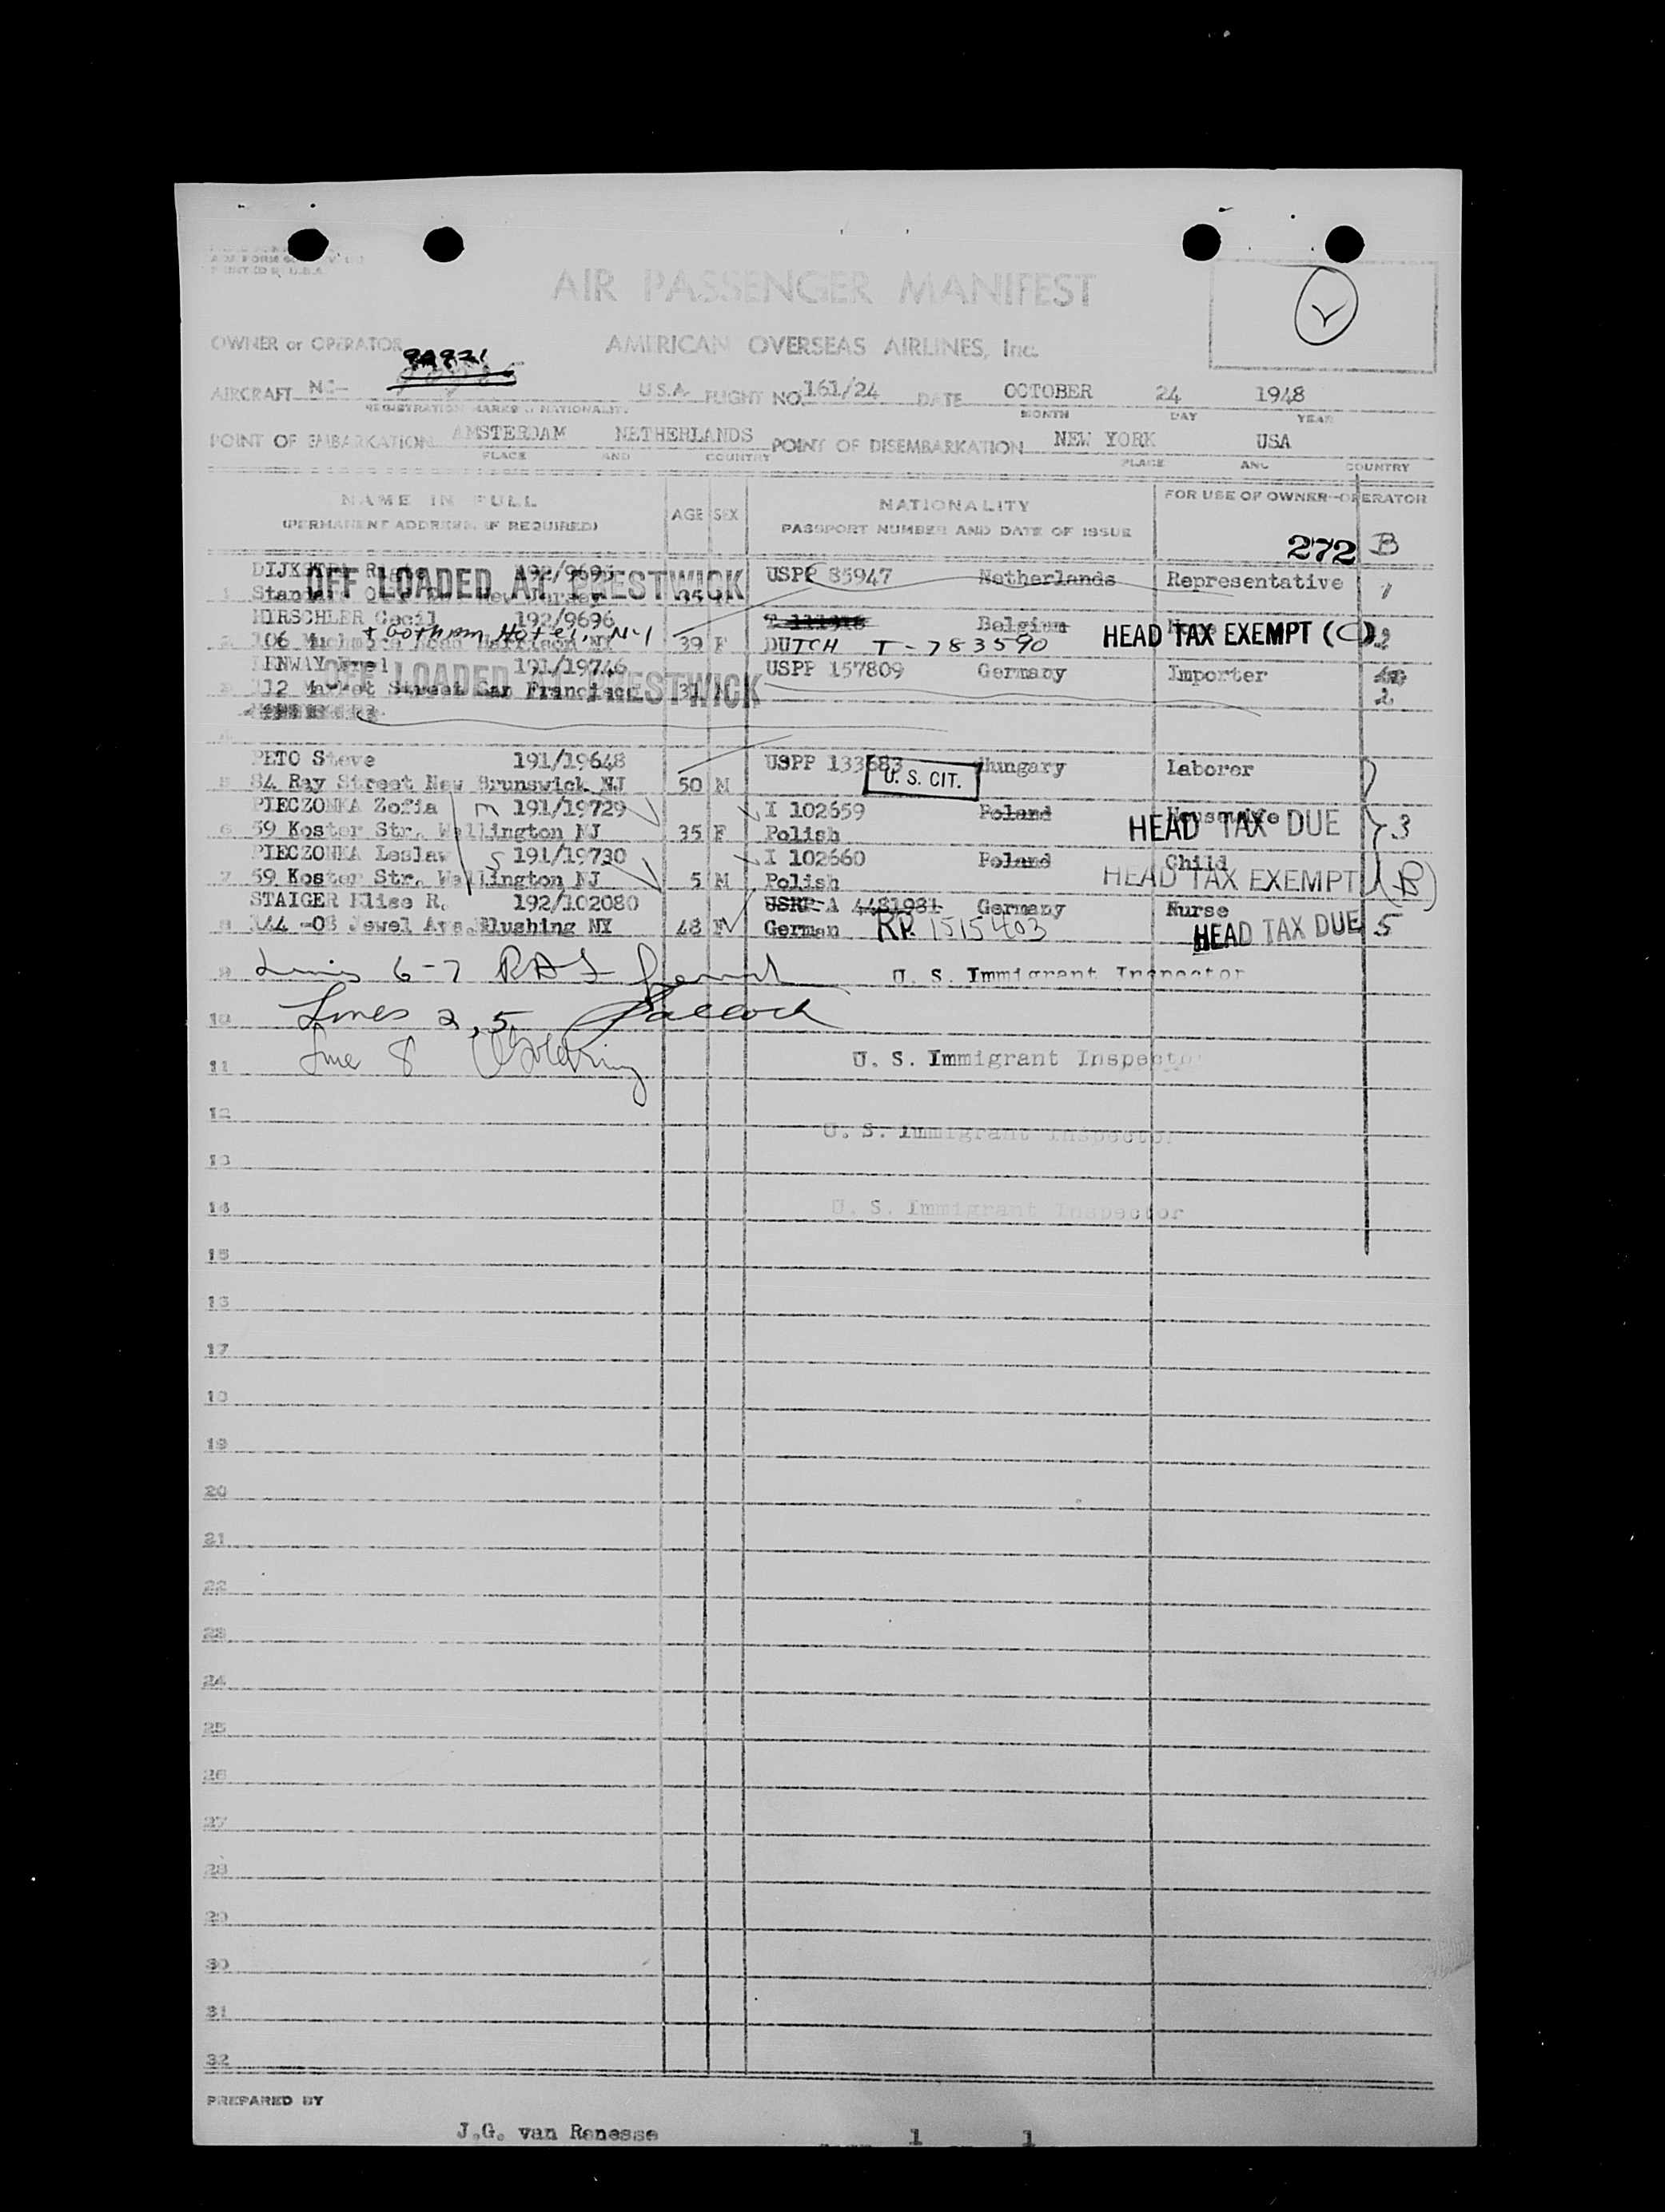 PRINTED IN U.S.A.
AIR PASSENGER MANIFEST
OWNER or OPERATOR AMERICAN OVERSEAS AIRLINES, Inc.
90921
AIRCRAFT NC- U.S.A. FLIGHT NO. 161/24 DATE OCTOBER 24 1948
REGISTRATION MARKS & NATIONALITY MONTH DAY YEAR
POINT OF EMBARKATION AMSTERDAM NETHERLANDS POINT OF DISEMBARKATION NEW YORK USA
PLACE AND COUNTRY PLACE AND COUNTRY
NAME IN FULL AGE SEX NATIONALITY FOR USE OF OWNER-OPERATOR
(PERMANENT ADDRESS, IF REQUIRED) PASSPORT NUMBER AND DATE OF ISSUE
272 B
DIJKSTRA 192/9695 USPP 85947 Netherlands Representative
OFF LOADED AT PRESTWICK
1 Standard New Jersey 35 1
HIRSCHLER Cecil 192/9696 Belgium
+ Gotham Hotel, N-Y
2 106 Road Harrison NY 39 F DUTCH T-783590 HEAD TAX EXEMPT (C) 2
191/19746 USPP 157809 Germany Importer
OFF LOADED AT PRESTWICK
3 112 Market Street San Francisco 31 M 2
4
PETO Steve 191/19648 USPP 133683 Hungary Laborer
U. S. CIT.
5 84 Ray Street New Brunswick NJ 50 M
PIECZONKA Zofia m 191/19729 I 102659 Poland Housewife
6 59 Koster Str. Wallington NJ 35 F Polish HEAD TAX DUE 3
PIECZONKA Leslaw S 191/19730 I 102660 Poland Child
7 59 Koster Str. Wallington NJ 5 M Polish HEAD TAX EXEMPT (B)
STAIGER Elise R. 192/102080 USRP A 4481981 Germany Nurse
8 144-08 Jewel Ave. Flushing NY 48 F German RP. 1515403 HEAD TAX DUE 5
9 Lines 6-7 U. S. Immigrant Inspector
10 Lines 2, 5
11 Line 8 U. S. Immigrant Inspector
12
U. S. Immigrant Inspector
13
14 U. S. Immigrant Inspector
15
16
17
18
19
20
21
22
23
24
25
26
27
28
29
30
31
32
PREPARED BY
J.G. van Renesse 1 1